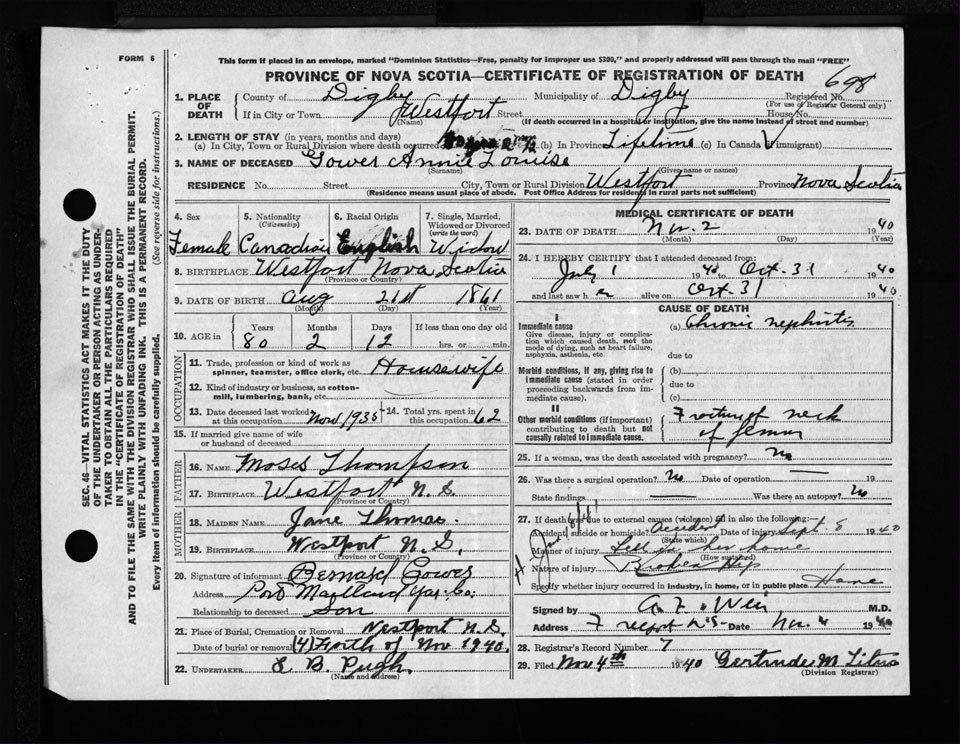 FORM 6
This form if placed in an envelope, marked "Dominion Statistics—Free, penalty for improper use $300," and properly addressed will pass through the mail "FREE"
PROVINCE OF NOVA SCOTIA—CERTIFICATE OF REGISTRATION OF DEATH
698
1. PLACE OF DEATH
County of Digby Municipality of Digby Registered No.
(For use of Registrar General only)
If in City or Town Westport Street House No.
(Name) (If death occurred in a hospital or institution, give the name instead of street and number)
2. LENGTH OF STAY (in years, months and days)
(a) In City, Town or Rural Division where death occurred (b) In Province Lifetime (c) In Canada (if immigrant)
3. NAME OF DECEASED Gower Annie Louise
(Surname) (Given name or names)
RESIDENCE No. Street City, Town or Rural Division Westport Province Nova Scotia
(Residence means usual place of abode. Post Office Address for residents in rural parts not sufficient)
4. Sex 5. Nationality (Citizenship) 6. Racial Origin 7. Single, Married, Widowed or Divorced (write the word)
Female Canadian English Widow
8. BIRTHPLACE Westport Nova Scotia
(Province or Country)
9. DATE OF BIRTH Aug 21st 1861
(Month) (Day) (Year)
10. AGE in Years Months Days If less than one day old
80 2 12 hrs. or min.
OCCUPATION
11. Trade, profession or kind of work as spinner, teamster, office clerk, etc. Housewife
12. Kind of industry or business, as cotton-mill, lumbering, bank, etc.
13. Date deceased last worked at this occupation Nov 1935 14. Total yrs. spent in this occupation 62
15. If married give name of wife or husband of deceased
FATHER
16. NAME Moses Thompson
17. BIRTHPLACE Westport N.S.
(Province or Country)
MOTHER
18. MAIDEN NAME Jane Thomas.
19. BIRTHPLACE Westport N.S.
(Province or Country)
20. Signature of informant Bernard Gower
Address Port Maitland Yar. Co.
Relationship to deceased Son
21. Place of Burial, Cremation or Removal Westport N.S.
Date of burial or removal (4) Forth of Nov 1940.
22. UNDERTAKER E. B. Pugh.
(Name and address)
MEDICAL CERTIFICATE OF DEATH
23. DATE OF DEATH Nov. 2 1940
(Month) (Day) (Year)
24. I HEREBY CERTIFY that I attended deceased from:
July 1 1940 to Oct. 31 1940
and last saw her alive on Oct. 31 1940
CAUSE OF DEATH
I
Immediate cause (a) Chronic nephritis
Give disease, injury or complication which caused death, not the mode of dying, such as heart failure, asphyxia, asthenia, etc.
due to
Morbid conditions, if any, giving rise to immediate cause (stated in order proceeding backwards from immediate cause).
(b)
due to
(c)
II
Other morbid conditions (if important) contributing to death but not causally related to immediate cause.
Fracture of neck
of femur
25. If a woman, was the death associated with pregnancy? No
26. Was there a surgical operation? No Date of operation 19
State findings Was there an autopsy? No
27. If death was due to external causes (violence) fill in also the following:
Accident, suicide or homicide? Accident Date of injury Sept. 8 1940
(State which)
Manner of injury Fell in her home
(How sustained)
Nature of injury Broken Hip
Specify whether injury occurred in industry, in home, or in public place Home
Signed by M.D.
Address Freeport N.S. Date Nov. 4 1940
28. Registrar's Record Number 7
29. Filed Nov 4th 1940 Gertrude M. Titus
(Division Registrar)
SEC. 46—VITAL STATISTICS ACT MAKES IT THE DUTY
OF THE UNDERTAKER OR PERSON ACTING AS UNDERTAKER TO OBTAIN ALL THE PARTICULARS REQUIRED
IN THE "CERTIFICATE OF REGISTRATION OF DEATH"
AND TO FILE THE SAME WITH THE DIVISION REGISTRAR WHO SHALL ISSUE THE BURIAL PERMIT.
WRITE PLAINLY WITH UNFADING INK. THIS IS A PERMANENT RECORD.
Every item of information should be carefully supplied. (See reverse side for instructions.)